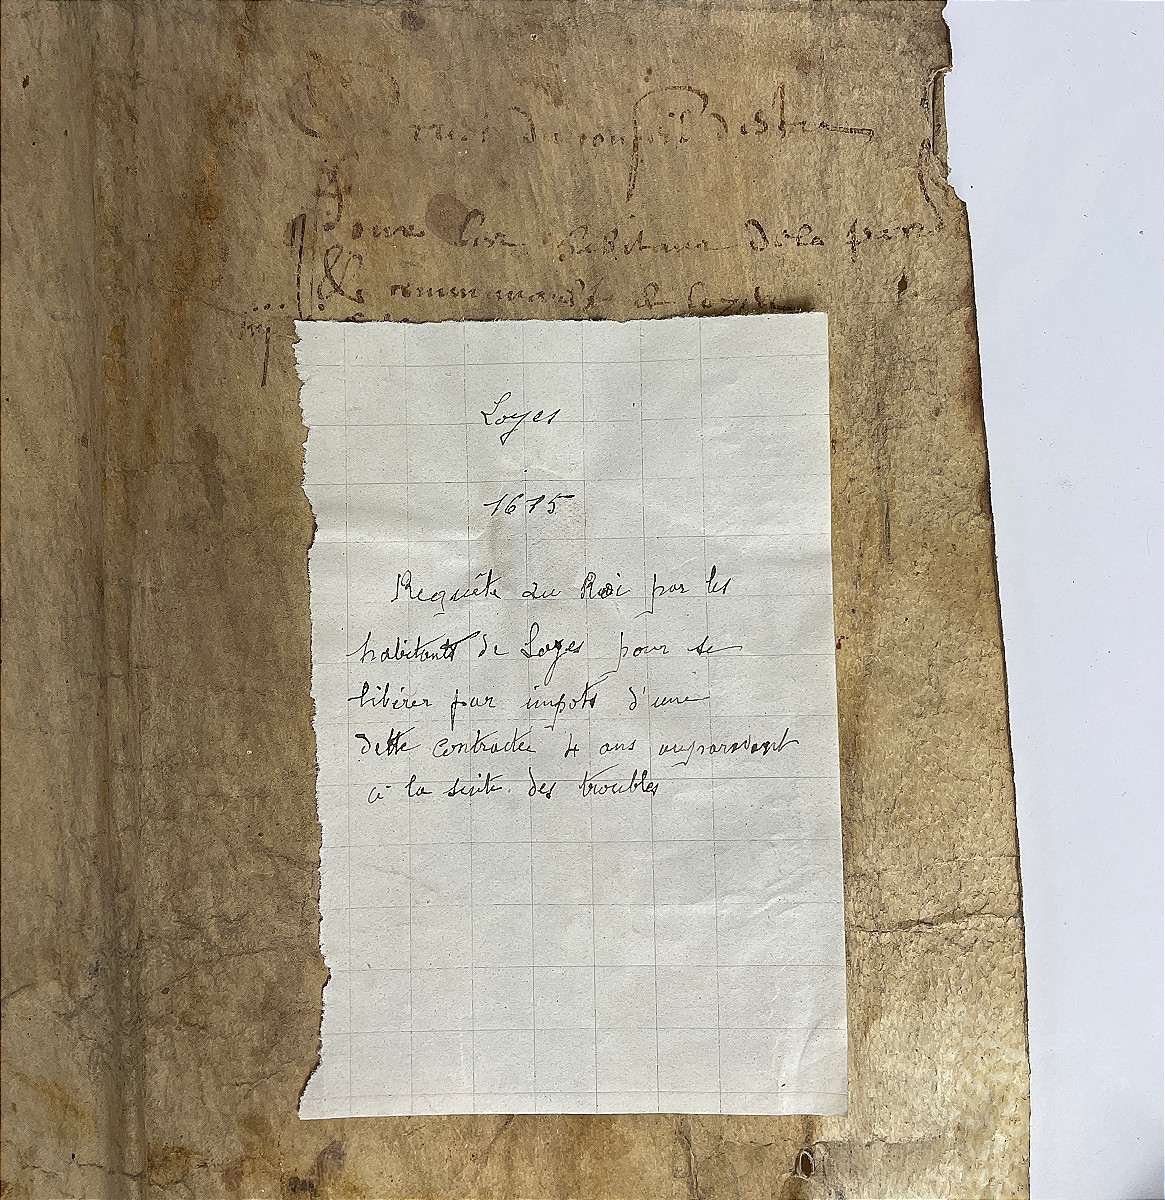 du conseil destat
Pour les habitans de la
& communauté de Loyes
Loyes
1615
Requête au Roi par les
habitants de Loyes pour se
libérer par impots d'une
dette contractée 4 ans auparavant
à la suite des troubles